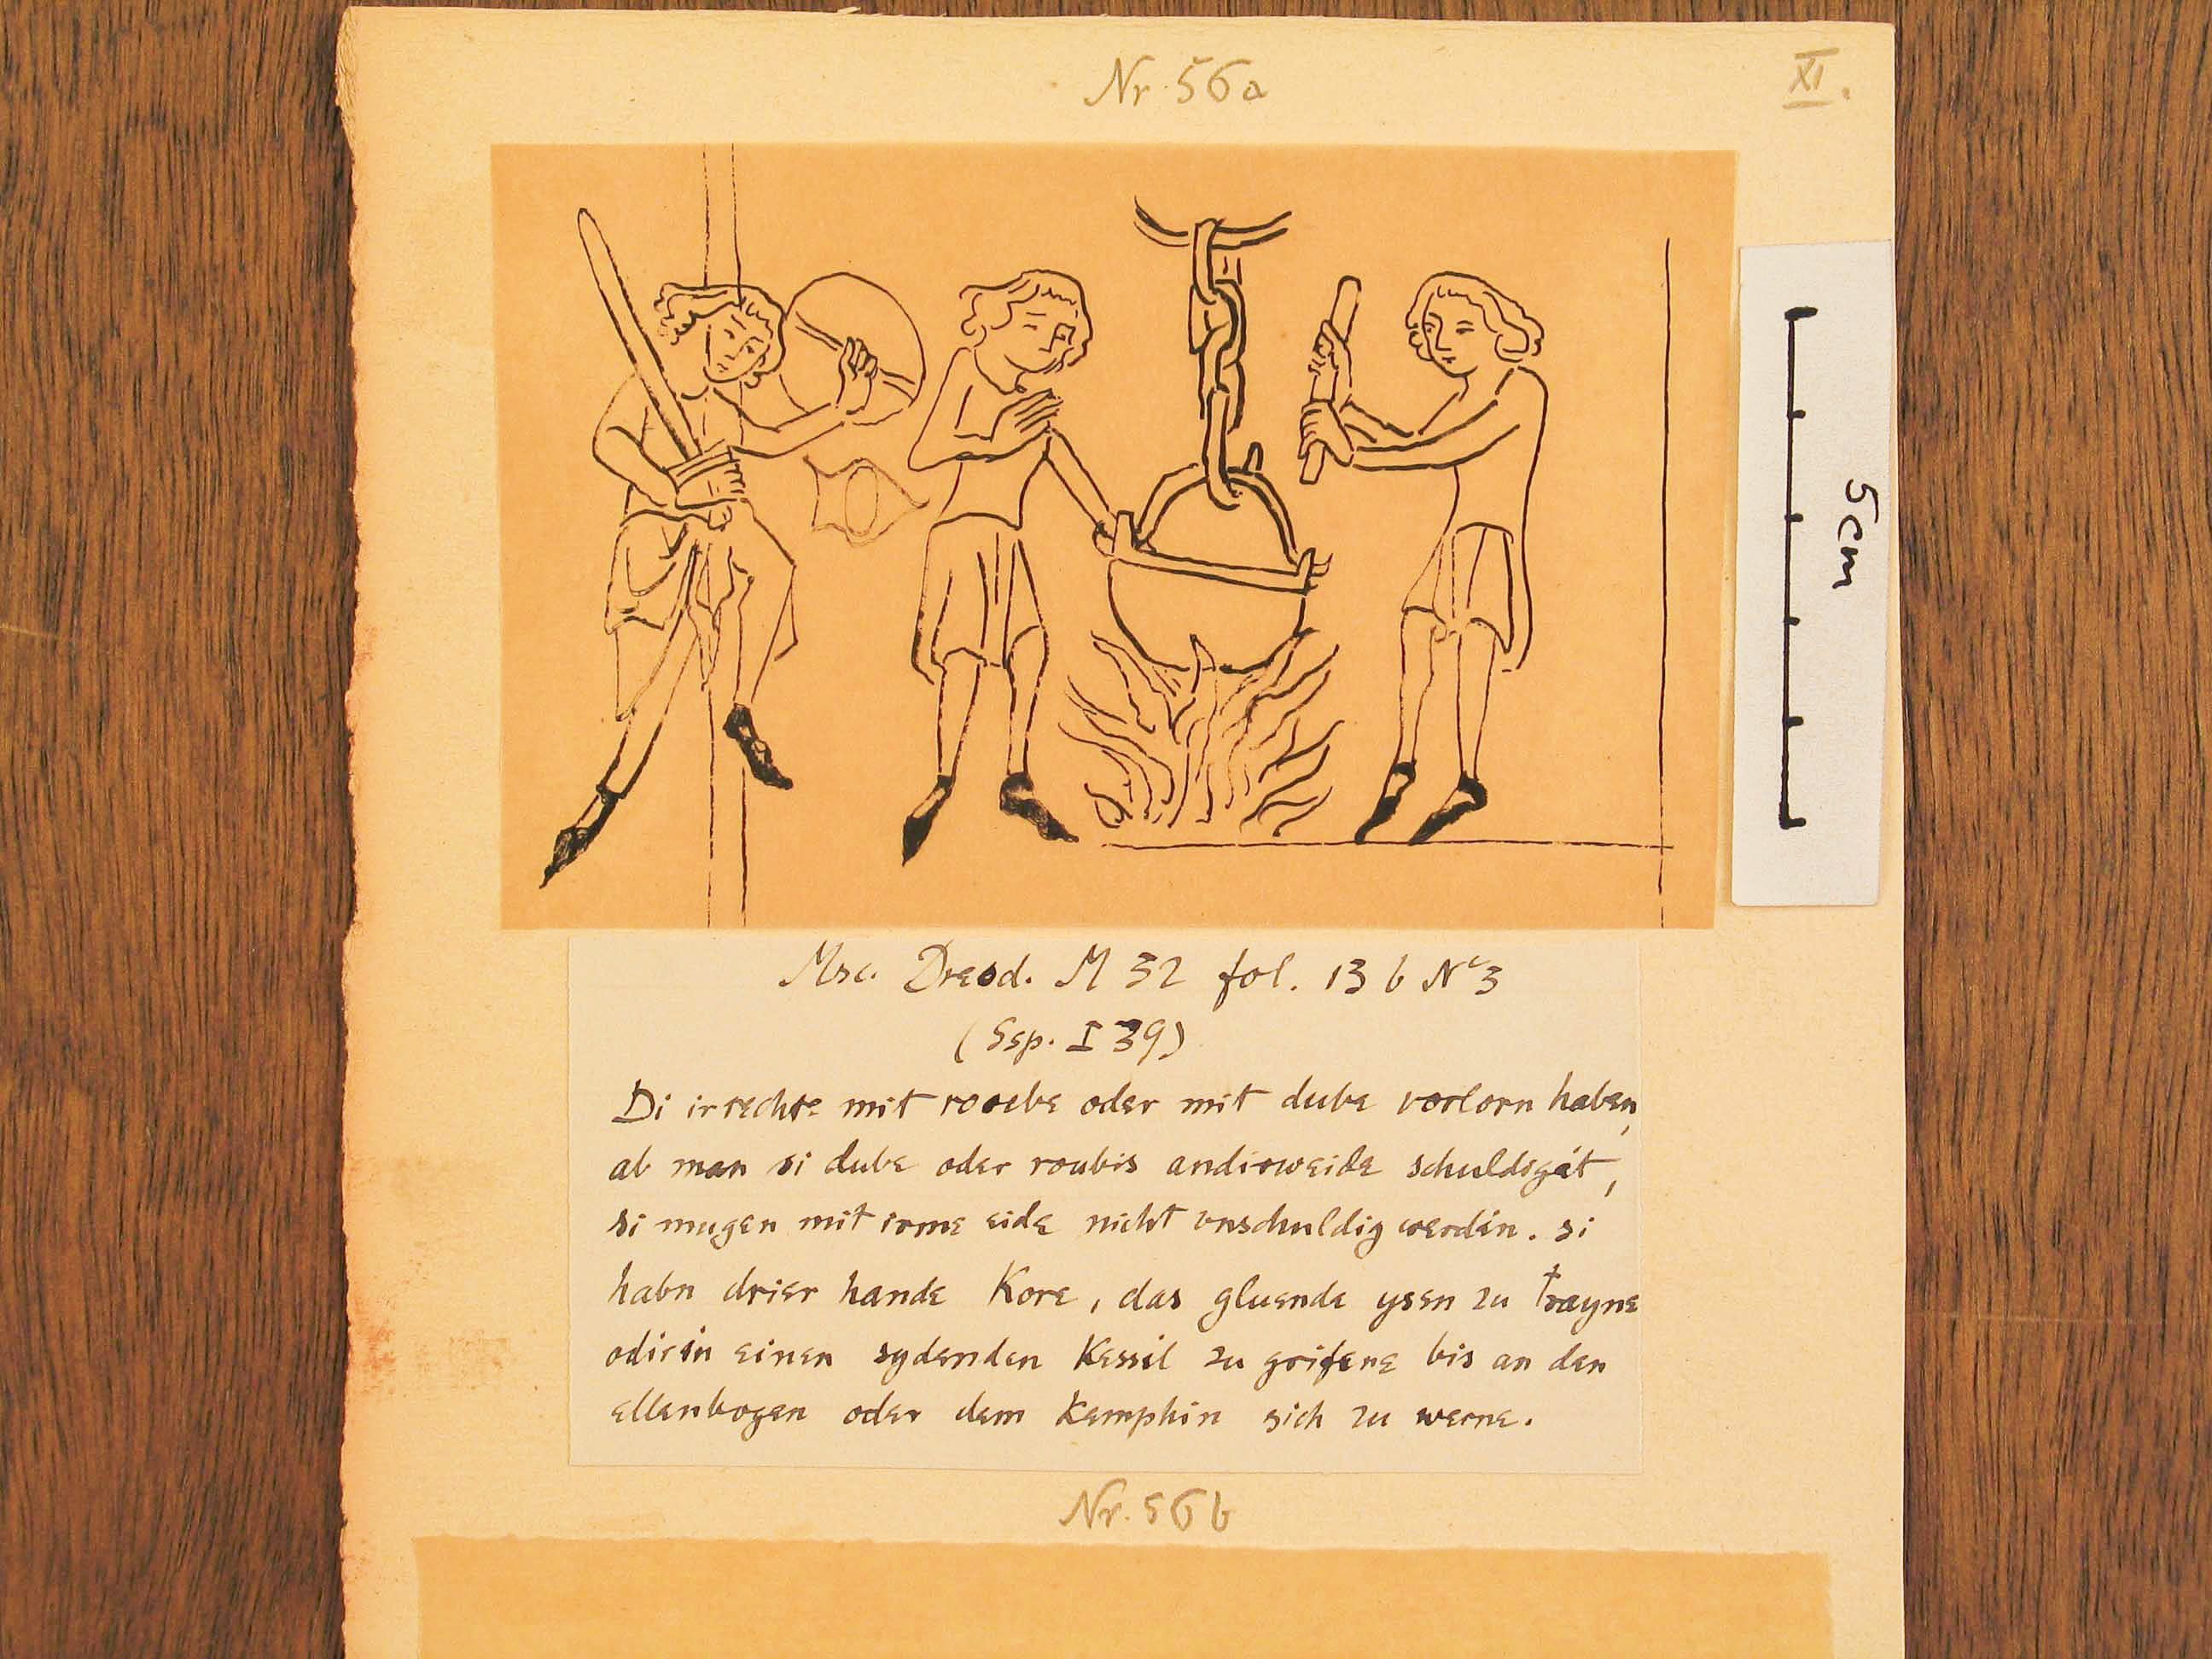 Nr. 56a
XI.
5cm
Msc. Dresd. M 32 fol. 13 b Nr 3
(Ssp. I 39)
Di ir rechte mit roube oder mit dube vorlorn haben,
ab man si dube oder roubis andirweide schuldigit,
si mugen mit irme eide nicht vnschuldig werdin. si
habn drier hande Kore, das gluende ysen zu trayne
odir in einen sydenden Kessil zu grifene bis an den
ellenbogen oder dem Kemphin sich zu werne.
Nr. 56b